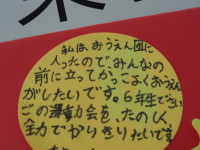 私は、おうえん団に
入ったので、みんなの
前に立ってかっこよくおうえん
がしたいです。6年生でさいご
の運動会を、たのしく
全力でがんばりたいです